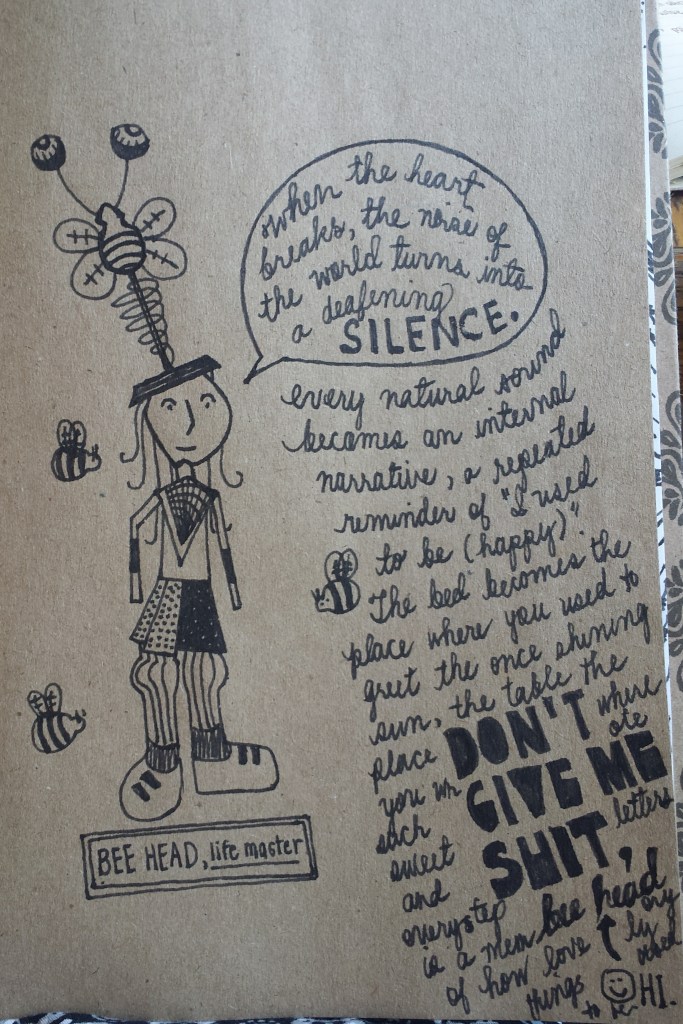 when the heart
breaks, the noise of
the world turns into
a deafening
SILENCE.
every natural sound
becomes an internal
narrative, a repeated
reminder of "I used
to be (happy)"
The bed becomes the
place where you used to
greet the once shining
sun, the table the
place DON'T where
you GIVE ME ate
such SHIT, letters
sweet
and
every step bee head
is a mem ory
of how love ly
things used
to be HI.
BEE HEAD, life master